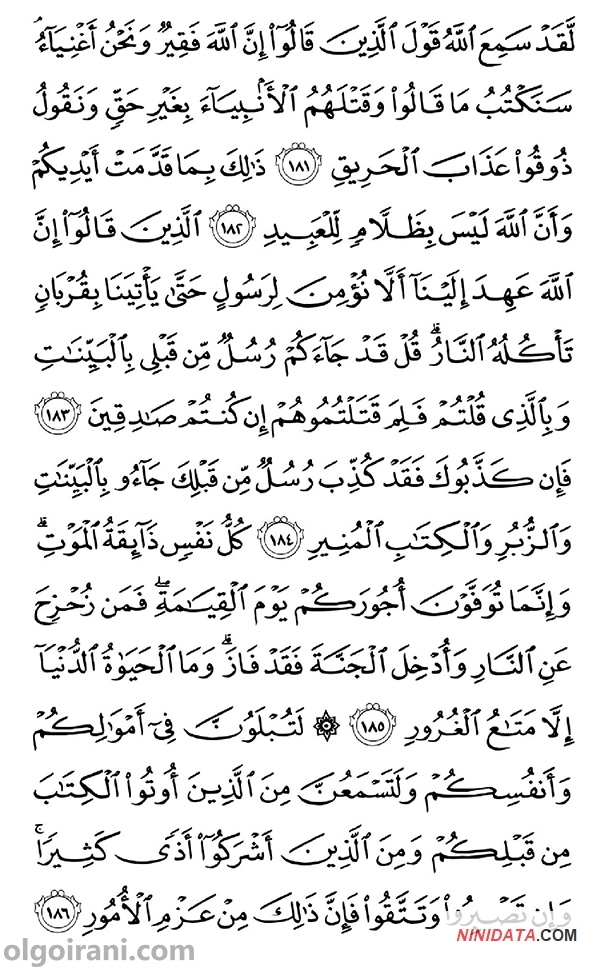 لَّقَدۡ سَمِعَ ٱللَّهُ قَوۡلَ ٱلَّذِينَ قَالُوٓاْ إِنَّ ٱللَّهَ فَقِيرٞ وَنَحۡنُ أَغۡنِيَآءُۘ
سَنَكۡتُبُ مَا قَالُواْ وَقَتۡلَهُمُ ٱلۡأَنۢبِيَآءَ بِغَيۡرِ حَقّٖ وَنَقُولُ
ذُوقُواْ عَذَابَ ٱلۡحَرِيقِ ١٨١ ذَٰلِكَ بِمَا قَدَّمَتۡ أَيۡدِيكُمۡ
وَأَنَّ ٱللَّهَ لَيۡسَ بِظَلَّامٖ لِّلۡعَبِيدِ ١٨٢ ٱلَّذِينَ قَالُوٓاْ إِنَّ
ٱللَّهَ عَهِدَ إِلَيۡنَآ أَلَّا نُؤۡمِنَ لِرَسُولٍ حَتَّىٰ يَأۡتِيَنَا بِقُرۡبَانٖ
تَأۡكُلُهُ ٱلنَّارُۗ قُلۡ قَدۡ جَآءَكُمۡ رُسُلٞ مِّن قَبۡلِي بِٱلۡبَيِّنَٰتِ
وَبِٱلَّذِي قُلۡتُمۡ فَلِمَ قَتَلۡتُمُوهُمۡ إِن كُنتُمۡ صَٰدِقِينَ ١٨٣
فَإِن كَذَّبُوكَ فَقَدۡ كُذِّبَ رُسُلٞ مِّن قَبۡلِكَ جَآءُو بِٱلۡبَيِّنَٰتِ
وَٱلزُّبُرِ وَٱلۡكِتَٰبِ ٱلۡمُنِيرِ ١٨٤ كُلُّ نَفۡسٖ ذَآئِقَةُ ٱلۡمَوۡتِۗ
وَإِنَّمَا تُوَفَّوۡنَ أُجُورَكُمۡ يَوۡمَ ٱلۡقِيَٰمَةِۖ فَمَن زُحۡزِحَ
عَنِ ٱلنَّارِ وَأُدۡخِلَ ٱلۡجَنَّةَ فَقَدۡ فَازَۗ وَمَا ٱلۡحَيَوٰةُ ٱلدُّنۡيَآ
إِلَّا مَتَٰعُ ٱلۡغُرُورِ ١٨٥ ۞ لَتُبۡلَوُنَّ فِيٓ أَمۡوَٰلِكُمۡ
وَأَنفُسِكُمۡ وَلَتَسۡمَعُنَّ مِنَ ٱلَّذِينَ أُوتُواْ ٱلۡكِتَٰبَ
مِن قَبۡلِكُمۡ وَمِنَ ٱلَّذِينَ أَشۡرَكُوٓاْ أَذٗى كَثِيرٗاۚ
وَإِن تَصۡبِرُواْ وَتَتَّقُواْ فَإِنَّ ذَٰلِكَ مِنۡ عَزۡمِ ٱلۡأُمُورِ ١٨٦
NINIDATA.COM
olgoirani.com